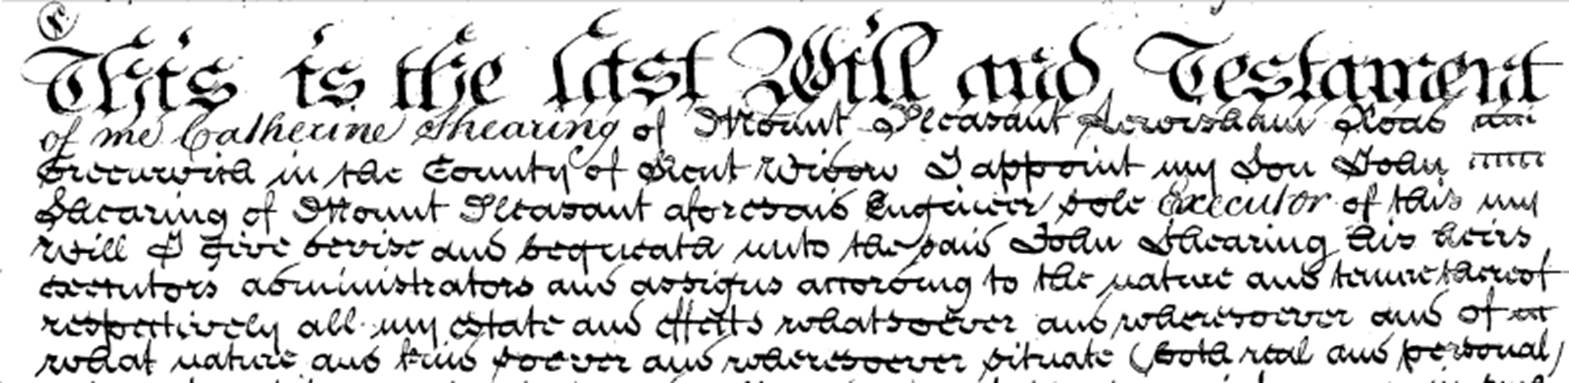 This is the last Will and Testament
of me Catherine Shearing of Mount Pleasant Road
Greenwich in the County of Kent Widow I appoint my Son John
Shearing of Mount Pleasant aforesaid Engineer sole Executor of this my
will I give devise and bequeath unto the said John Shearing his heirs
executors administrators and assigns according to the nature and tenure thereof
respectively all my estate and effects whatsoever and wheresoever and of
what nature and kind soever and wheresoever situate (both real and personal)